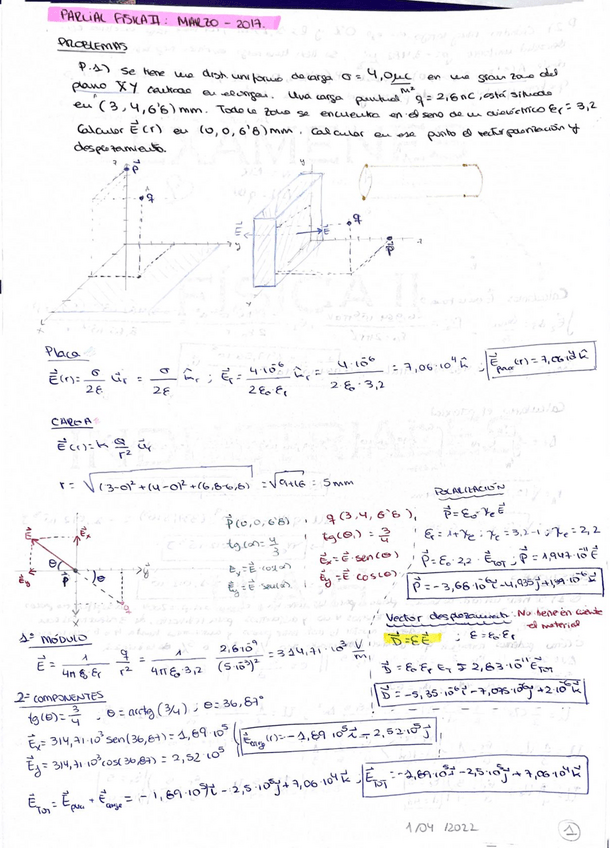 PARCIAL FÍSICA II: MARZO - 2017.
PROBLEMAS
P.1) Se tiene una distr. uniforme de carga σ = 4,0 μC/m² en una gran zona del
plano XY centrado en el origen. Una carga puntual q = 2,6 nC, está situada
en (3, 4, 6'8) mm. Toda la zona se encuentra en el seno de un dieléctrico εr = 3,2
Calcular E⃗(r) en (0, 0, 6'8) mm. Calcular en ese punto el vector polarización y
desplazamiento.
P
q
y
x
y
E⃗
E⃗
q
P
Placa
E⃗(r) = σ/2ε u⃗r = σ/2ε û r ; E⃗r = 4·10⁻⁶/2ε₀εr û r = 4·10⁻⁶/2·ε₀·3,2 = 7,06·10⁴ k̂ ; E⃗placa(r) = 7,06·10⁴ k̂
CARGA
E⃗(r) = k Q/r² u⃗r
r = √((3-0)² + (4-0)² + (6,8-6,8)) = √9+16 = 5mm
E⃗
E⃗x
θ
P
θ
y⃗
E⃗y
q
x
P⃗(0, 0, 6'8)
tg(α) = 4/3
E⃗x = E⃗ cos(α)
E⃗y = E⃗ sen(α)
q(3, 4, 6'8)
tg(θ) = 3/4
E⃗x = E⃗ · sen(θ)
E⃗y = E⃗ cos(θ)
POLARIZACIÓN
P⃗ = ε₀ · χe E⃗
εr = 1+χe ; χe = 3,2-1 ; χe = 2,2
P⃗ = ε₀ · 2,2 · E⃗TOT ; P⃗ = 1,947·10⁻¹¹ E⃗
P⃗ = -3,68·10⁻⁶ i⃗ - 4,935 j⃗ + 1,37·10⁻⁶ k⃗
Vector desplazamiento : No tiene en cuenta
el material
D⃗ = εE⃗ ; ε = ε₀·εr
D⃗ = ε₀ εr E⃗T = 2,83·10⁻¹¹ E⃗TOT
D⃗ = -5,35·10⁻⁶ i⃗ - 7,075·10⁻⁶ j⃗ + 2·10⁻⁶ k⃗
1º MÓDULO
E⃗ = 1/4π ε₀ εr q/r² = 1/4π ε₀·3,2 2,6·10⁻⁹/(5·10⁻³)² = 314,71·10³ V/m
2º COMPONENTES
tg(θ) = 3/4 , θ = arctg(3/4) ; θ = 36,87°
E⃗x = 314,71·10³ sen(36,87) = 1,89·10⁵
E⃗y = 314,71·10³ cos(36,87) = 2,52·10⁵
E⃗carga(r) = -1,89·10⁵ i⃗ - 2,52·10⁵ j⃗
E⃗TOT = E⃗placa + E⃗carga = -1,89·10⁵ i⃗ - 2,5·10⁵ j⃗ + 7,06·10⁴ k⃗ ; E⃗TOT = -1,89·10⁵ i⃗ - 2,5·10⁵ j⃗ + 7,06·10⁴ k⃗
1/04/2022
1